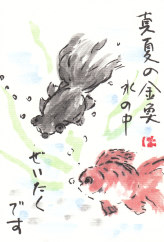 真夏の金魚
水の中
ぜいたく
です